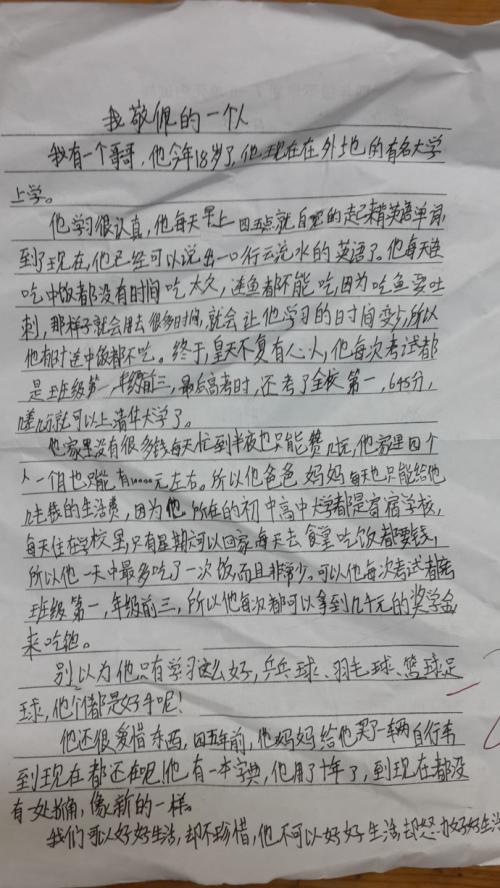 我敬佩的一个人
我有一个哥哥，他今年18岁了，他现在在外地的有名大学
上学。
他学习很认真，他每天早上四五点就自的起来背英语单词，
到了现在，他已经可以说出一口行云流水的英语了。他每天连
吃中饭都没有时间吃太久，连鱼都不能吃，因为吃鱼要吐
刺，那样子就会用去很多时间，就会让他学习的时间变少，所以
他有时连中饭都不吃。终于，皇天不复有人心，他每次考试都
是班级第一，年级前三，最后高考时，还考了全校第一，645分，
差几分就可以上清华大学了。
他家里没有很多钱每天忙到半夜也只能赞几元，他家里四个
人一个月也只能有10000元左右。所以他爸爸妈妈每天也只能给他
几十钱的生活费，因为他所在的初中高中大学都是寄宿学校，
每天住在学校里，只有星期天可以回家，每天去食堂吃饭都要钱，
所以他一天中最多吃了一次饭，而且非常少。可以他每次考试都
班级第一，年级前三，所以他每次都可以拿到几千元的奖学金
来吃饭。
别以为他只有学习这么好，乒乓球、羽毛球、篮球足
球，他个个都是好手呢！
他还很爱惜东西，四五年前，他妈妈给他买了一辆自行车
到现在都还在呢！他有一本字典，他用了十年了，到现在都没
有一处拆角，像新的一样。
我们可以好好生活，却不珍惜，他不可以好好生活却努力好好生活